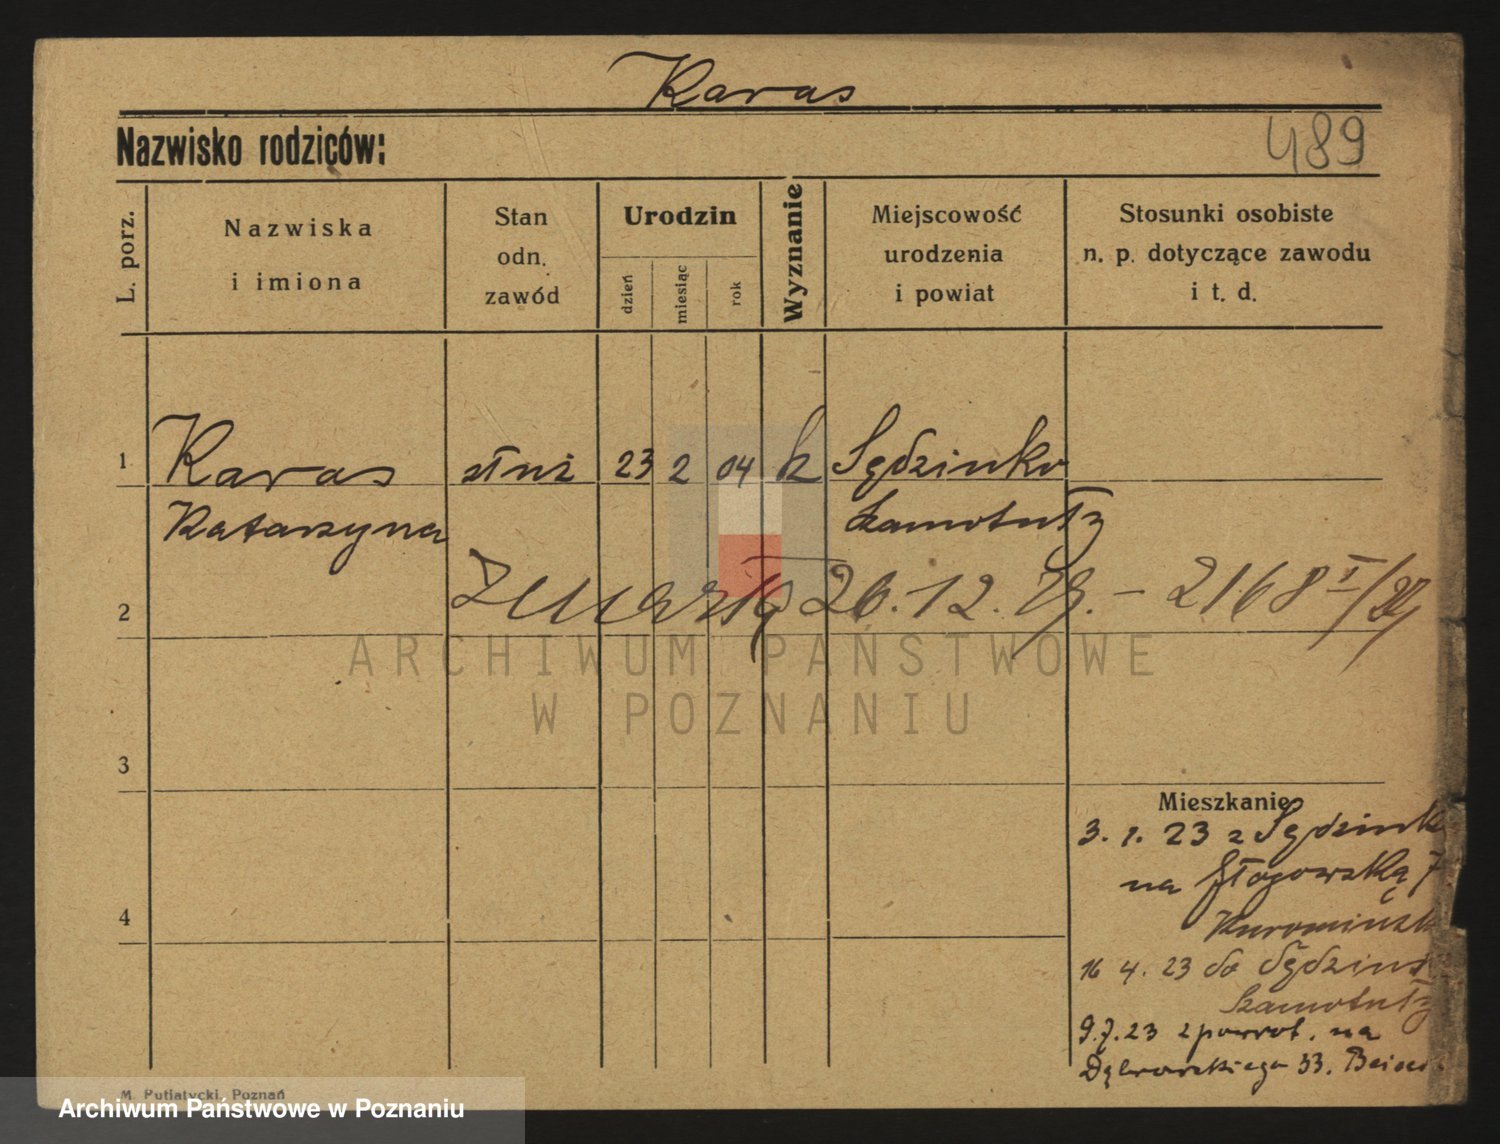 Karas
Nazwisko rodziców:
489
L. porz.
Nazwiska
i imiona
Stan
odn.
zawód
Urodzin
dzień
miesiąc
rok
Wyznanie
Miejscowość
urodzenia
i powiat
Stosunki osobiste
n. p. dotyczące zawodu
i t. d.
1
Karas
służ
23
2
04
k
Sędzinko
Katarzyna
Szamotuły
2
Zmarła 26.12. - 2168 I/
ARCHIWUM PAŃSTWOWE
W POZNANIU
3
Mieszkanie
3. 1. 23 z Sędzink
na Głogowską 7
4
16 4. 23 do Sędzink
Szamotuły
9.7.23 zpowrot. na
Dąbrowskiego 33.
M. Putiatycki, Poznań
Archiwum Państwowe w Poznaniu